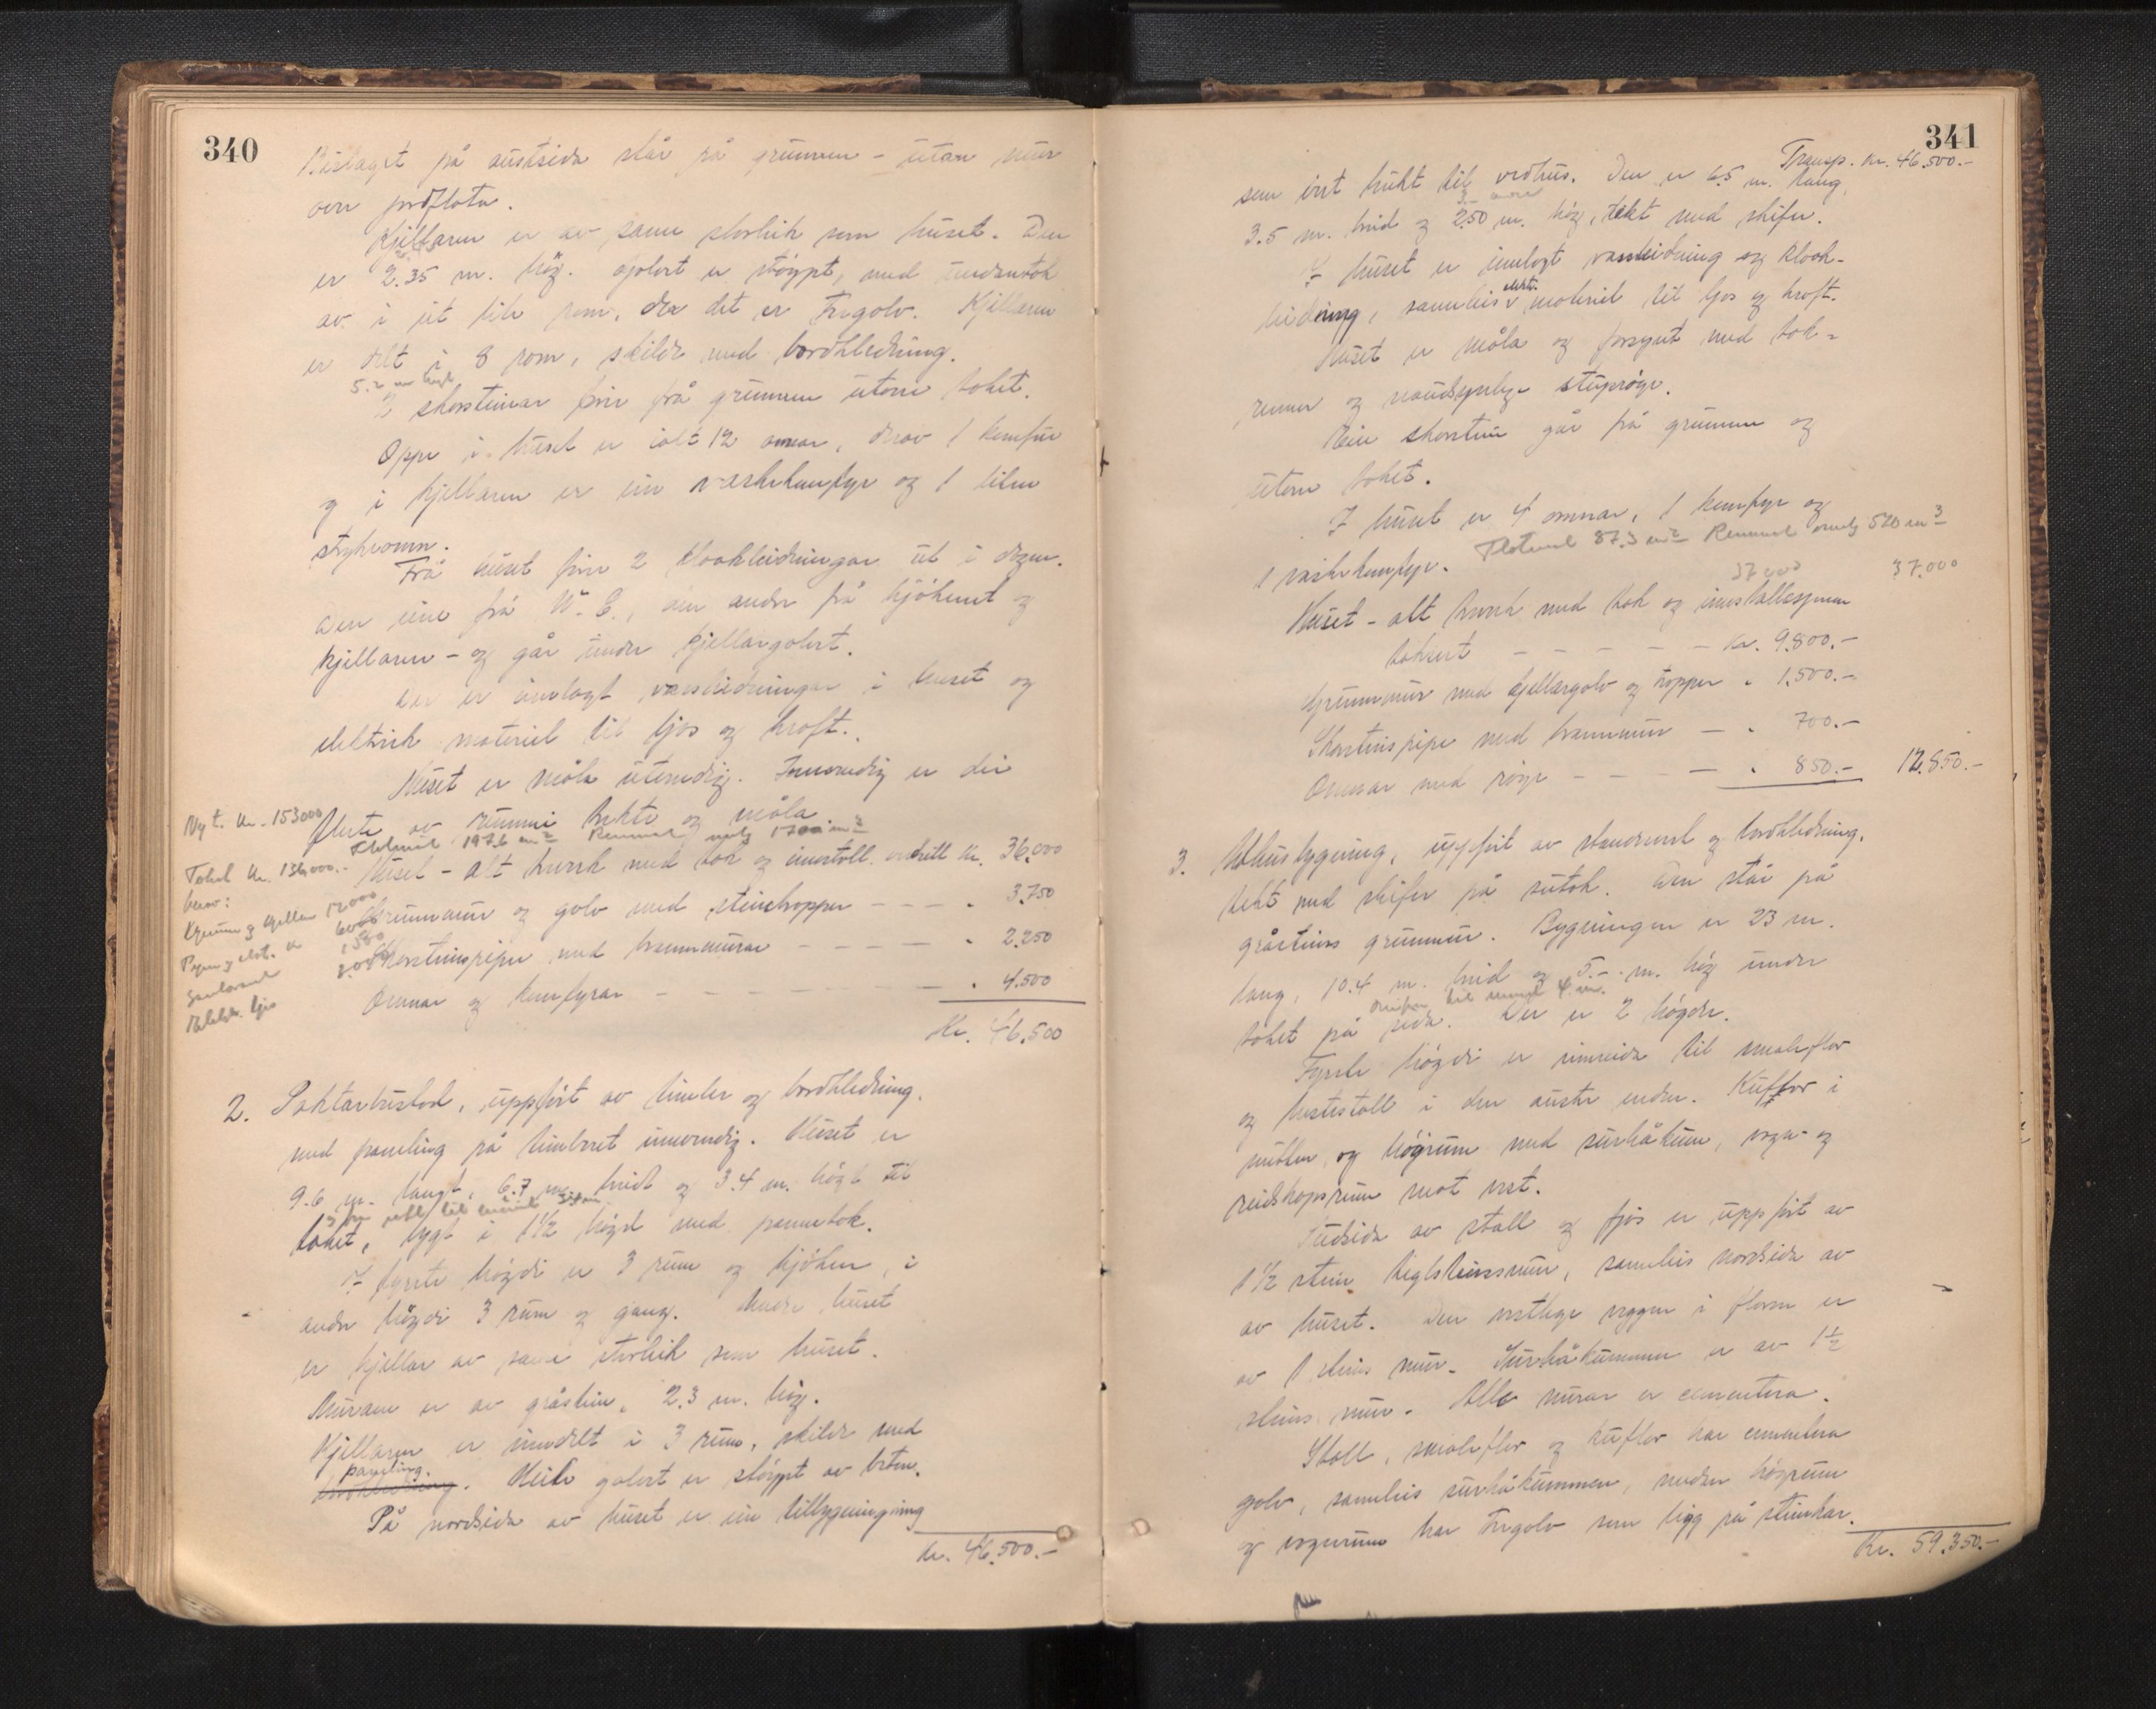 340
Bislaget på austsida står på grunnen - utan mur
over jordflata.
Kjellaren er av same storleik som huset. Den
er 2.35 m. høg. Golvet er støypt, med undantak
av i eit lite rom, der det er tregolv. Kjellaren
er delt i 8 rom, skilde med bordkledning.
2 skorsteinar förer frå grunnen utover taket.
Oppe i huset er ialt 12 omnar, derav 1 komfür
og i kjellaren er ein vaskekomfyr og 1 liten
strykeomn.
Frå huset förer 2 kloakleidningar ut i
Den eine frå W.C., den andre frå kjökenet og
kjellaren - og går under kjellargolvet.
Der er innlagt vassleidningar i huset og
elektrisk materiel til ljos og kraft.
Huset er måla utvendig. Innvendig er dei
fleste av rummi trekte og måla.
Ny t. kr. 153000
Flateinnh. 197.6 m² Romm. 1700 m³
Takst kr. 136,000.-
Huset - alt treverk med tak og innstall. Kr. 36.000
herav:
Grunnmur og golv med steintropper - - - " 3.750
Skorsteinspiper med brannmurar - - - - " 2.250
Omnar og komfyrar - - - - - - " 4.500
Kr. 46.500
2. Paktarbustad, uppfört av timber og bordkledning,
med paneling på timbret innvendig. Huset er
9.6 m. langt, 6.7 m. breidt og 3.4 m. högt til
taket, bygt i 1½ högd med pannetak.
I fyrste högdi er 3 rum og kjöken, i
andre högdi 3 rum og gang. Under huset
er kjellar av same storleik som huset.
Murane er av gråstein, 2.3 m. høg.
Kjellaren er inndelt i 3 rum, skilde med
paneling.
bordkledning. Heile golvet er støypt av beton.
På nordsida av huset er ein tillbygningning
Kr. 46.500.-
341
Transp. kr. 46.500.-
som vert brukt til vedhus. Den er 6.5 m. lang,
3.5 m. breid og 2.50 m. høg, tekt med skifer.
I huset er innlagt vassleidning og kloak-
leidning, sameleis elektr. materiel til ljos og kraft.
Huset er måla og forsynt med tak-
renner og naudsynlege stuprøyr.
Ein skorstein går frå grunnen og
utover taket.
I huset er 4 omnar, 1 komfyr og
1 vaskekomfyr. Flateinnh. 87.3 m² Rommål 520 m³
37000 37.000
Huset - alt treverk med tak og
taksert - - - - - Kr. 9.800.-
Grunnmur med kjellargolv og tropper " 1.500.-
Skorsteinspipe med brannmur - " 700.-
Omnar med røyr - - - - " 850.- 12.850.-
3. Uthusbygning, uppfört av standverk og bordkledning,
tekt med skifer på sutak. Den står på
gråsteins grunnmur. Bygningen er 23 m.
lang, 10.4 m. breid og 5.- m. høg under
taket på sida. Der er 2 høgder.
Fyrste høgdi er innreida til smaleflor
og hestestall i den austre enden. Kuflor i
midten og høyrum med surhåkum, vogn- og
reidskapsrum mot vest.
Sudsida av stall og fjos er uppfört av
1½ stein teglsteinsmur, sameleis nordsida av
av huset. Den vestlege veggen i floren er
av 1 steins mur. Surhåkummen er av 1½
steins mur. Alle murar er cementera.
Stall, smaleflor og kuflor har cementera
golv, sameleis surhåkummen, medan høyrum
og vognrum har tregolv som ligg på steinkar.
Kr. 59.350.-